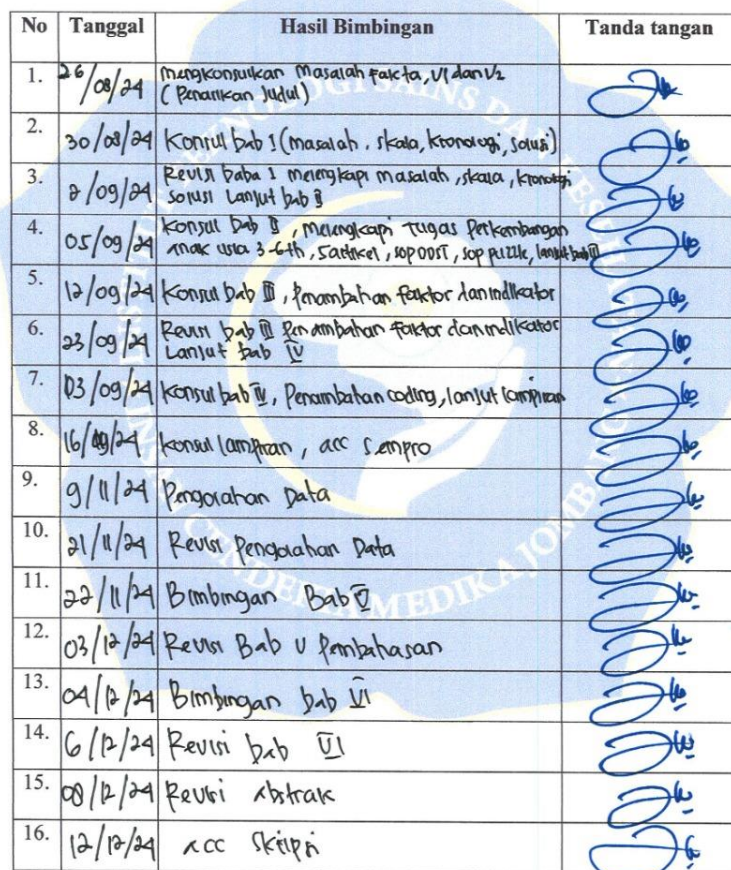 No Tanggal Hasil Bimbingan Tanda tangan
1. 26/08/24 mengkonsulkan Masalah Fakta, V1 dan V2
(Penarikan Judul)
2. 30/08/24 Konsul bab I (masalah, skala, kronologi, solusi)
3. 2/09/24 Revisi baba I melengkapi masalah, skala, kronologi
solusi Lanjut bab II
4. 05/09/24 Konsul bab II, melengkapi tugas Perkembangan
anak usia 3-6th, 5 artikel, sop DDST, sop puzzle, lanjut bab III
5. 12/09/24 Konsul bab III, Penambahan faktor dan indikator
6. 23/09/24 Revisi bab III Penambahan faktor dan indikator
Lanjut bab IV
7. 03/09/24 Konsul bab IV, Penambahan coding, lanjut lampiran
8. 16/09/24 Konsul lampiran, acc sempro
9. 9/11/24 Pengolahan Data
10. 21/11/24 Revisi Pengolahan Data
11. 22/11/24 Bimbingan Bab V
12. 03/12/24 Revisi Bab V Pembahasan
13. 04/12/24 Bimbingan bab VI
14. 6/12/24 Revisi bab VI
15. 08/12/24 Revisi Abstrak
16. 12/12/24 acc Skripsi
INSTITUT TEKNOLOGI SAINS DAN KESEHATAN
INSAN CENDEKIA MEDIKA JOMBANG